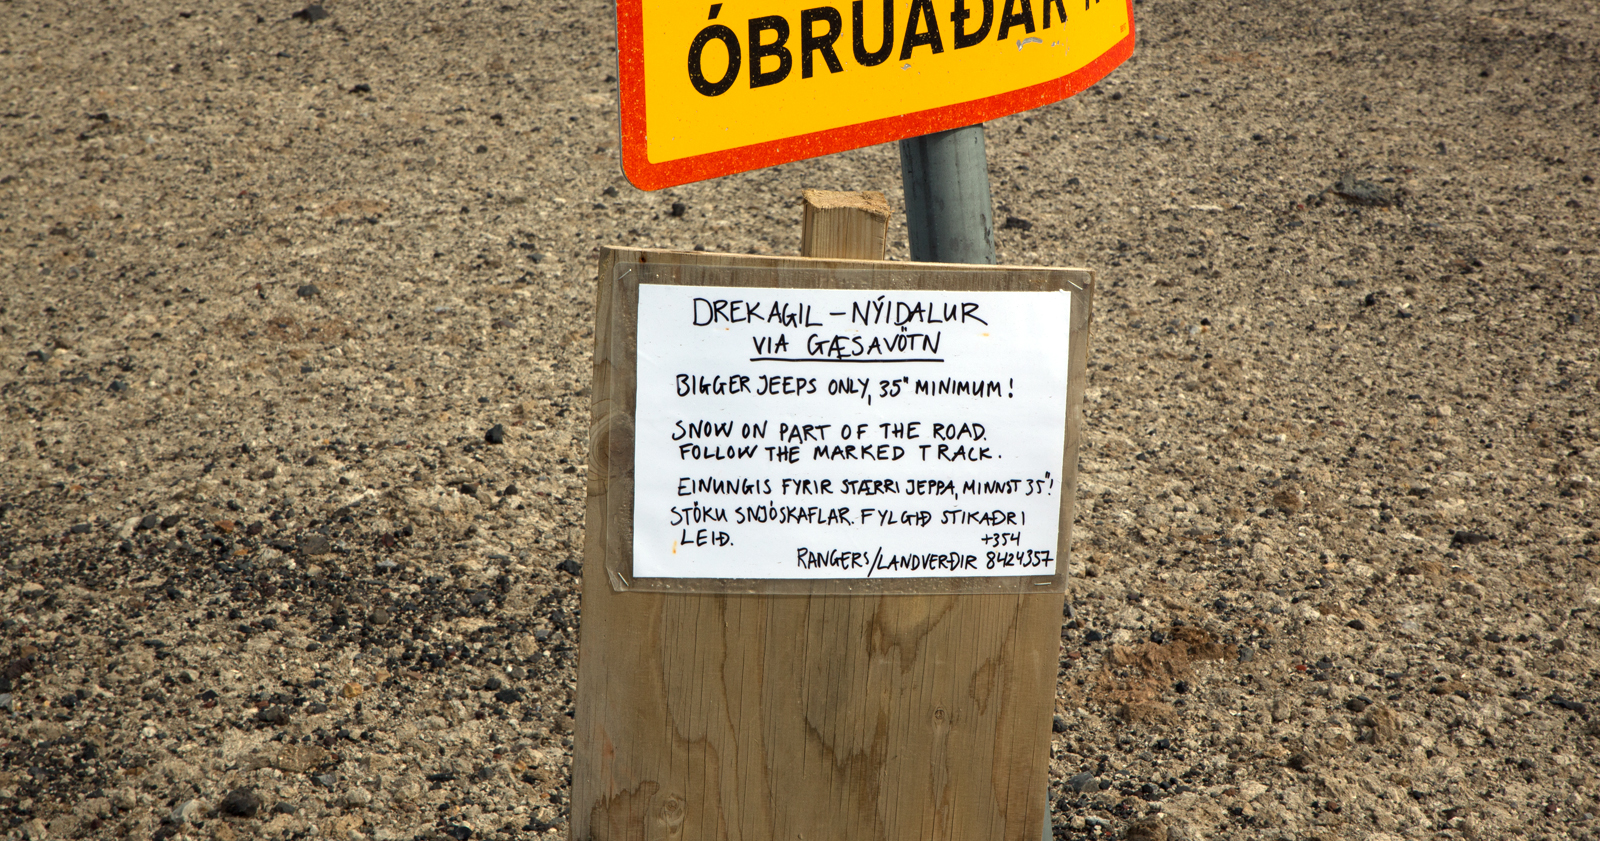 ÓBRÚAÐAR
DREKAGIL – NÝIDALUR
VIA GÆSAVÖTN
BIGGER JEEPS ONLY, 35" MINIMUM!
SNOW ON PART OF THE ROAD.
FOLLOW THE MARKED TRACK.
EINUNGIS FYRIR STÆRRI JEPPA, MINNST 35"!
STÖKU SNJÓSKAFLAR. FYLGIÐ STIKAÐRI
LEIÐ.
+354
RANGERS/LANDVERÐIR 8424357